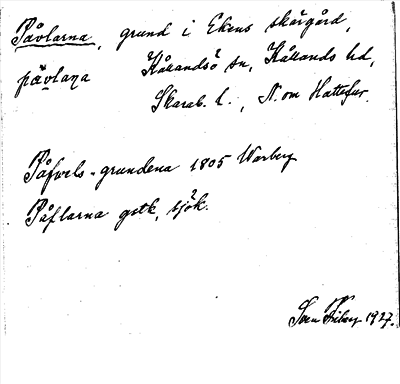 Påvlarna, grund i Ekens skärgård,
påvlaṇa Kållandsö sn, Kållands hd,
Skarab. l., N. om Hattefur.
Påfvels-grundena 1805 Warberg
Påflarna gstk, sjök.
Sven 1927.